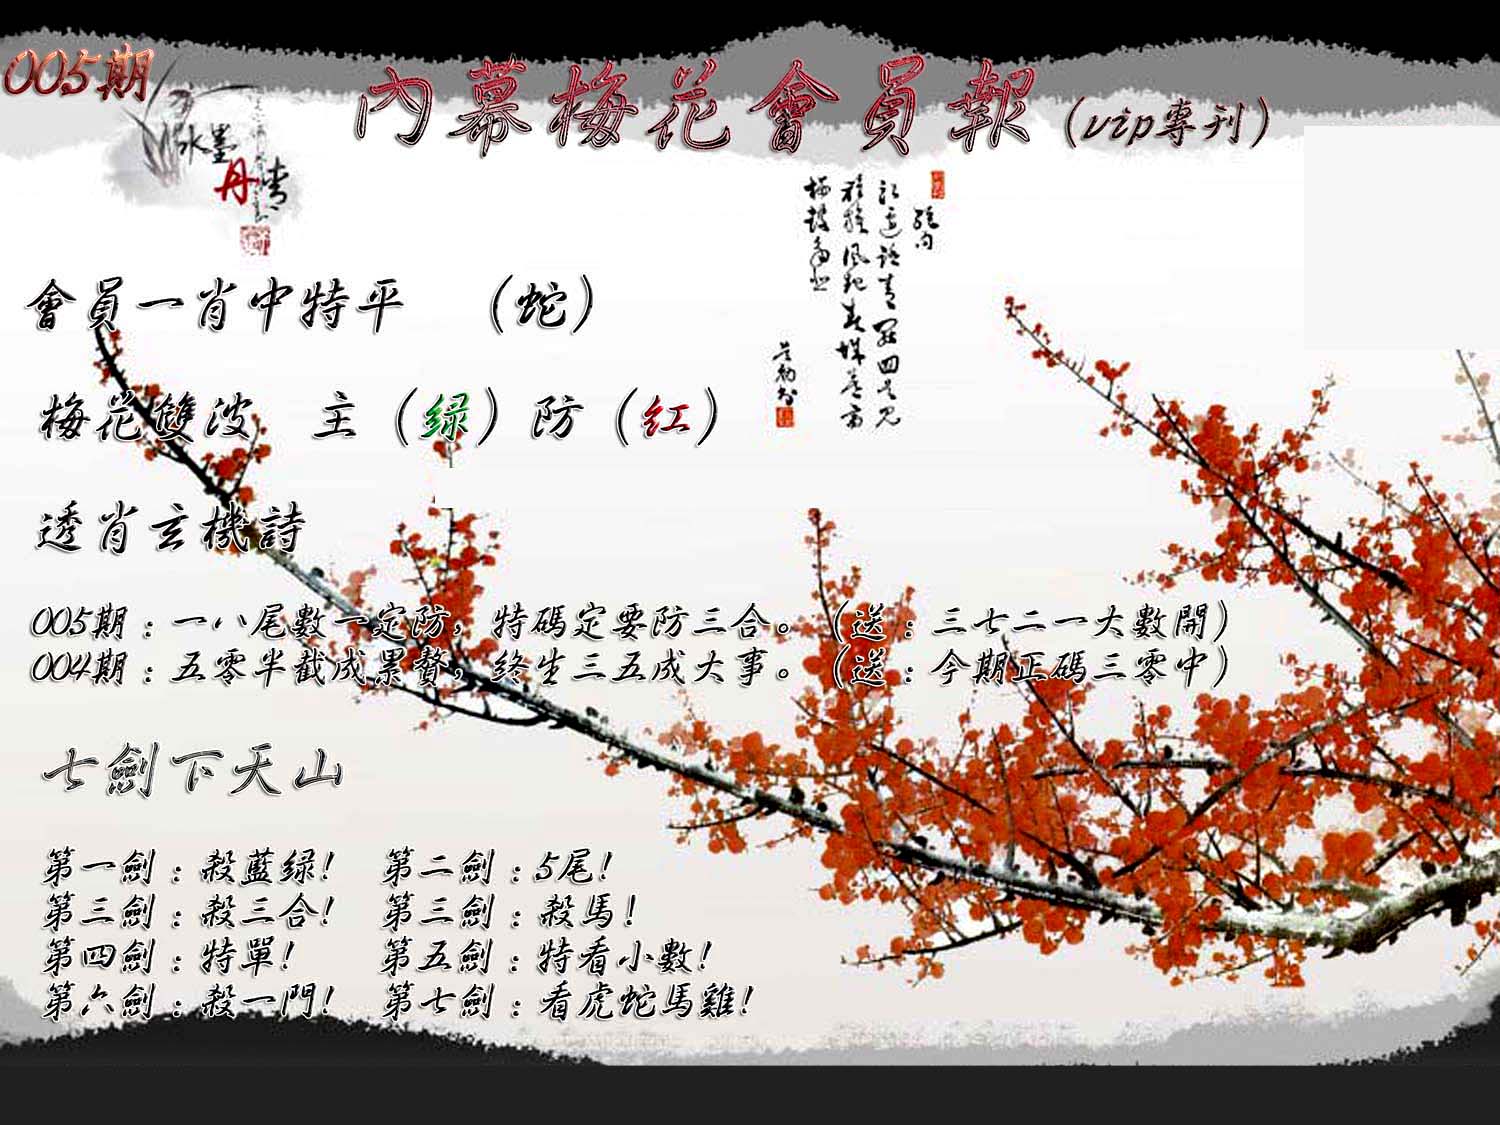 005期
內幕梅花會員報（vip專刊）
水墨
丹青
會員一肖中特平　（蛇）
梅花雙波　主（绿）防（红）
透肖玄機詩
005期：一八尾數一定防，特碼定要防三合。（送：三七二一大數開）
004期：五零半截成累贅，終生三五成大事。（送：今期正碼三零中）
七劍下天山
第一劍：殺藍绿！　第二劍：5尾！
第三劍：殺三合！　第三劍：殺馬！
第四劍：特單！　第五劍：特看小數！
第六劍：殺一門！　第七劍：看虎蛇馬雞！